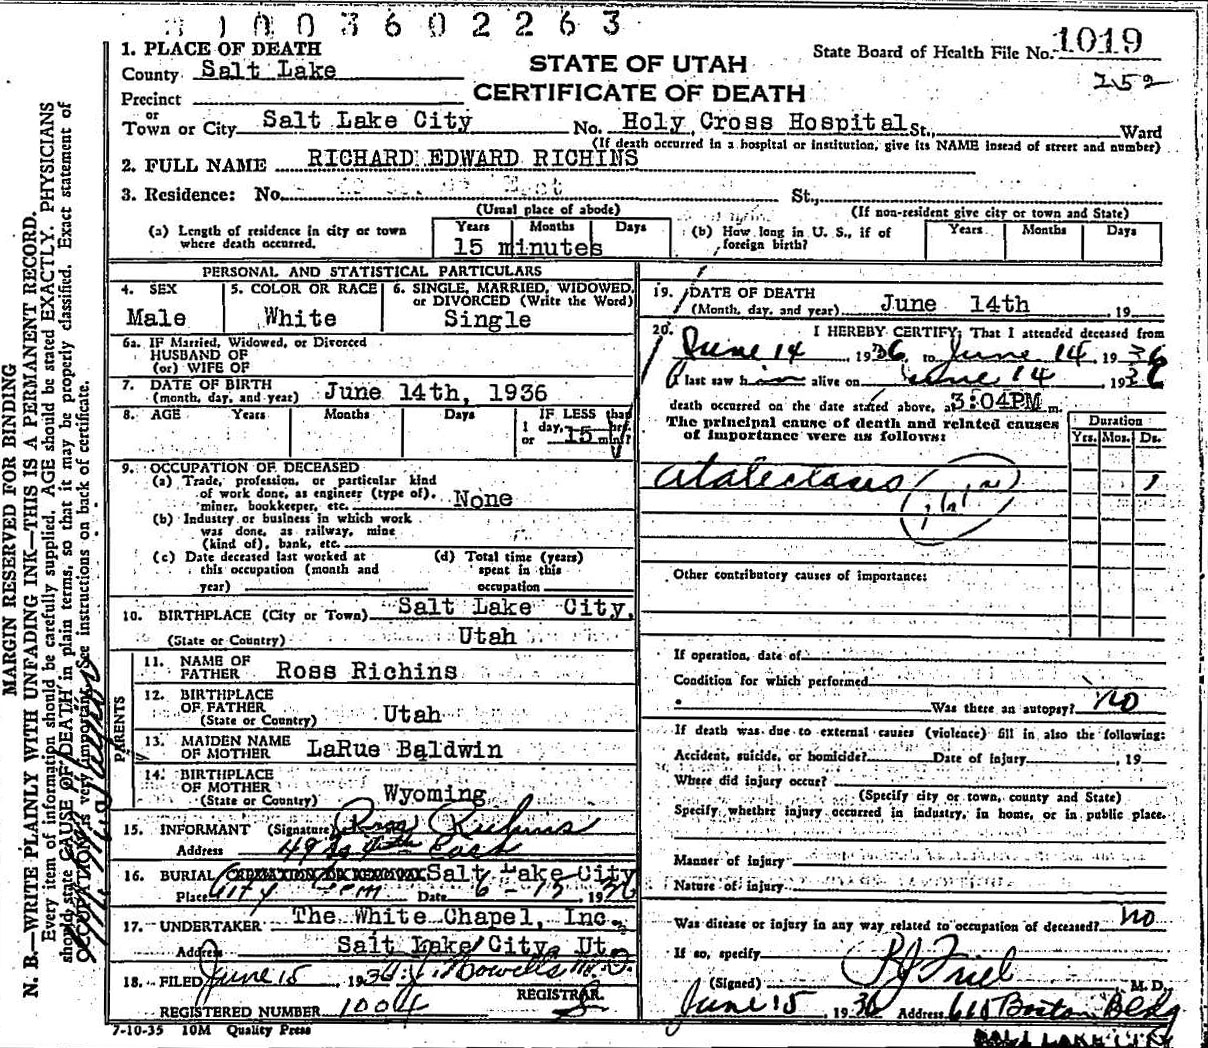 1003602263
1. PLACE OF DEATH
County Salt Lake
STATE OF UTAH
CERTIFICATE OF DEATH
State Board of Health File No. 1019
252
Precinct
or
Town or City Salt Lake City No. Holy Cross Hospital St., Ward
(If death occurred in a hospital or institution, give its NAME instead of street and number)
2. FULL NAME RICHARD EDWARD RICHINS
3. Residence: No. St.,
(Usual place of abode) (If non-resident give city or town and State)
(a) Length of residence in city or town where death occurred. Years Months Days
15 minutes
(b) How long in U. S., if of foreign birth? Years Months Days
PERSONAL AND STATISTICAL PARTICULARS
4. SEX 5. COLOR OR RACE 6. SINGLE, MARRIED, WIDOWED, or DIVORCED (Write the Word)
Male White Single
6a. IF Married, Widowed, or Divorced
HUSBAND OF
(or) WIFE OF
7. DATE OF BIRTH
(month, day, and year) June 14th, 1936
8. AGE Years Months Days IF LESS than
1 day, hrs.
or 15 min?
9. OCCUPATION OF DECEASED
(a) Trade, profession, or particular kind
of work done, as engineer (type of).
miner, bookkeeper, etc. None
(b) Industry or business in which work
was done, as railway, mine
(kind of), bank, etc.
(c) Date deceased last worked at
this occupation (month and
year)
(d) Total time (years)
spent in this
occupation
10. BIRTHPLACE (City or Town) Salt Lake City,
(State or Country) Utah
PARENTS
11. NAME OF
FATHER Ross Richins
12. BIRTHPLACE
OF FATHER
(State or Country) Utah
13. MAIDEN NAME
OF MOTHER LaRue Baldwin
14. BIRTHPLACE
OF MOTHER
(State or Country) Wyoming
15. INFORMANT (Signature) Ross Richins
Address East
16. BURIAL, CREMATION OR REMOVAL Salt Lake City
Place City Cem Date 6-15 1936
17. UNDERTAKER The White Chapel, Inc.
Address Salt Lake City, Ut.
18. FILED June 15 1936 M.D.
REGISTRAR.
REGISTERED NUMBER 1004
7-10-35 10M Quality Press
19. DATE OF DEATH
(Month, day, and year) June 14th , 19
20. I HEREBY CERTIFY: That I attended deceased from
June 14 1936 to June 14, 1936
I last saw him alive on June 14 , 1936
death occurred on the date stated above, at 3:04PM m.
The principal cause of death and related causes
of importance were as follows:
Duration
Yrs. Mos. Ds.
Atalectasis 1
Other contributory causes of importance:
If operation, date of
Condition for which performed
Was there an autopsy? no
If death was due to external causes (violence) fill in also the following:
Accident, suicide, or homicide? Date of injury , 19
Where did injury occur?
(Specify city or town, county and State)
Specify whether injury occurred in industry, in home, or in public place.
Manner of injury
Nature of injury
Was disease or injury in any way related to occupation of deceased? no
If so, specify
(Signed) M. D.
June 15 1936 Address Boston Bldg
SALT LAKE CITY
MARGIN RESERVED FOR BINDING
N. B.—WRITE PLAINLY WITH UNFADING INK—THIS IS A PERMANENT RECORD.
Every item of information should be carefully supplied. AGE should be stated EXACTLY. PHYSICIANS
should state CAUSE OF DEATH in plain terms, so that it may be properly classified. Exact statement of
OCCUPATION is very important. See instructions on back of certificate.